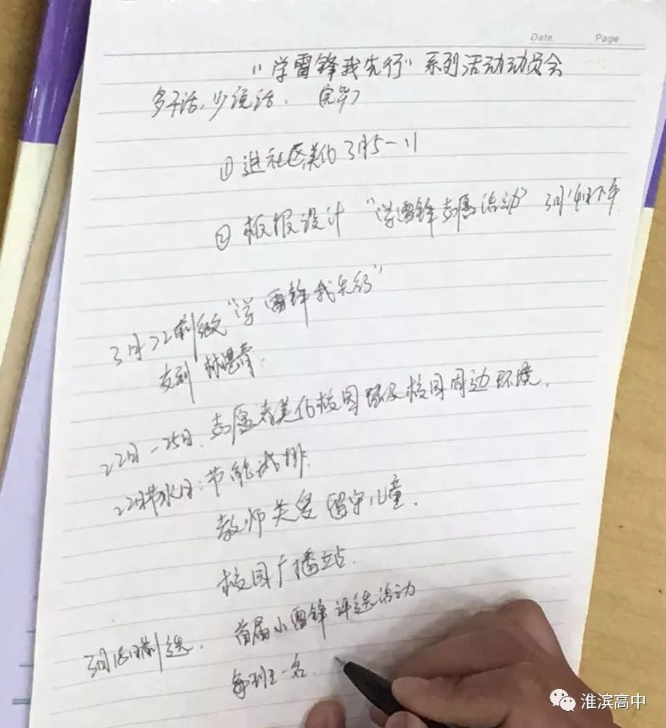 Date Page
"学雷锋我先行"系列活动动员会
多干活,少说话.
① 进社区美化 3月5-11
② 板报设计 "学雷锋志愿活动" 3月
3月22前 "学雷锋我先行"
发到
22日-25日. 志愿者美化校园 及校园周边环境.
22日节水日:节能减排.
教师关爱留守儿童.
校园广播站.
首届小雷锋评选活动
每班一名
淮滨高中